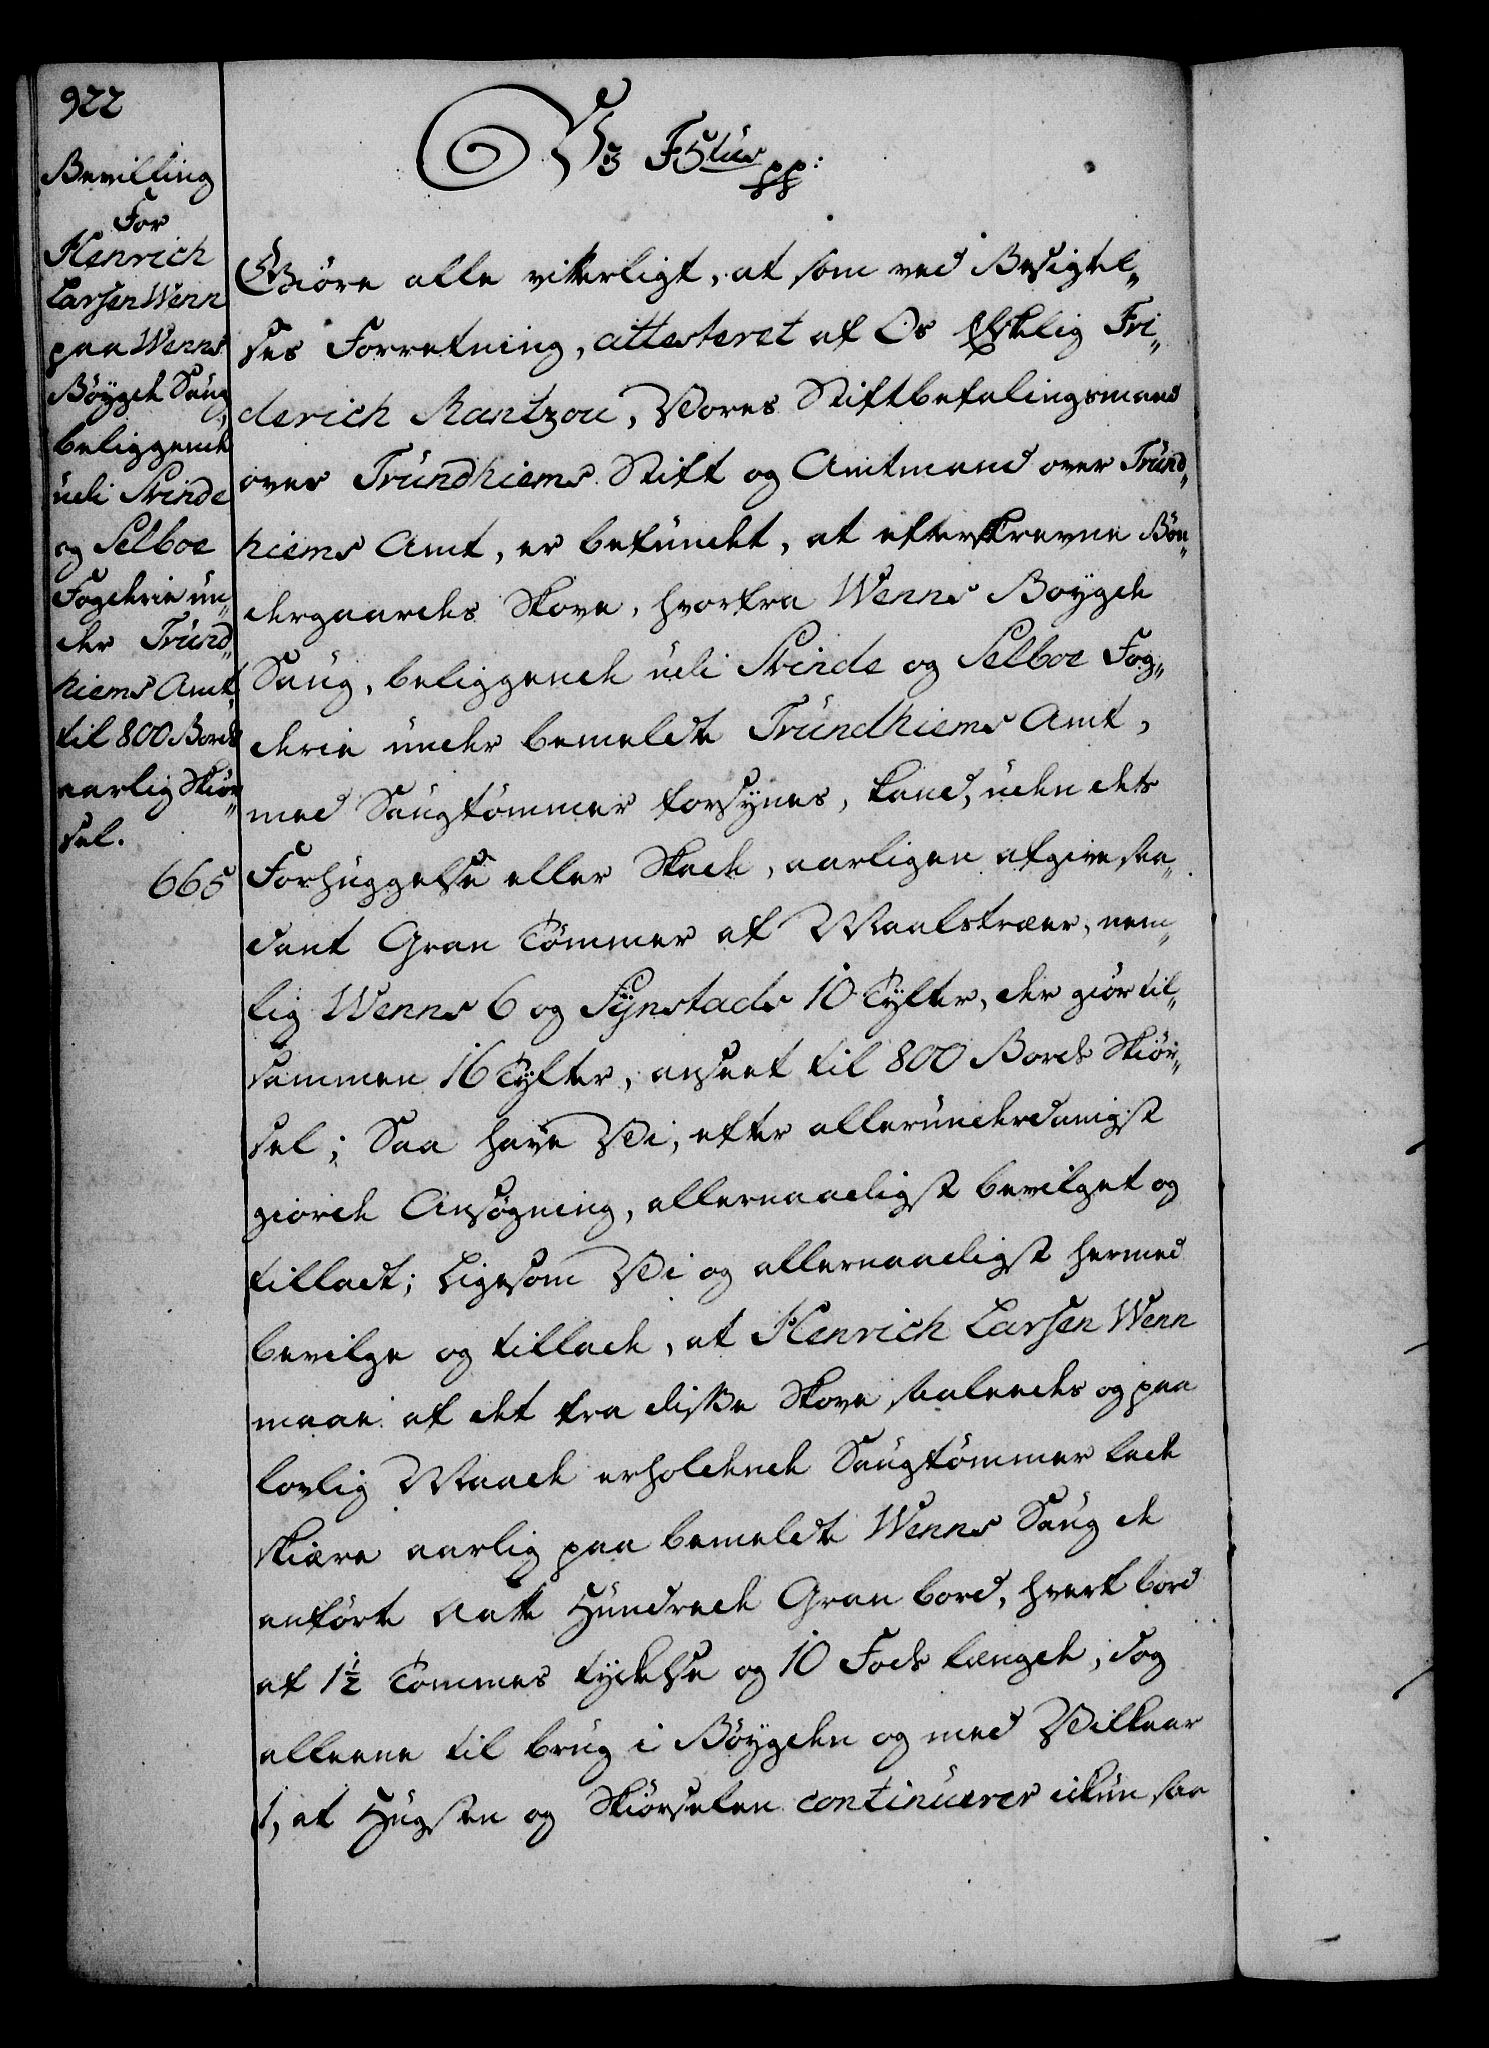 922
Bevilling
For
Henrich
Larsen Wenn
paa Wenns
Böygde Saug,
beliggende
udi Strinde
og Selboe
Fogderie un„
der Trund„
hiems Amt,
til 800 Bords
aarlig Skiør„
sel.
665
Vi F 5tus pp:
Giöre alle vitterligt, at som ved Besigtel„
ses Forretning, attesteret af Os Elskelig Fri„
derich Rantzou, Vores Stiftbefalingsmand
over Trundhiems Stift og Amtmand over Trund„
hiems Amt, er befundet, at efterskrevne Bön„
dergaardes Skove, hvorfra Wenns Boygde
Saug, beliggende udi Strinde og Selboe Fog„
derie under bemeldte Trundhiems Amt,
med Saugtömmer forsynes, kand, uden dets
Forhuggelse eller Skade, aarligen afgive saa„
dant Gran Tömmer af Maalstræer, nem„
lig Wenns 6 og Synstads 10 Tylter, der giör til„
sammen 16 Tylter, anseet til 800 Bords Skiör„
sel; Saa have Vi, efter allerunderdanigst
giorde Ansøgning, allernaadigst bevilget og
tilladt; Ligesom Vi og allernaadigst hermed
bevilge og tillade, at Henrich Larsen Wenn
maae af det fra diße Skove faldende og paa
lovlig Maade erholdende Saugtömmer lade
skiære aarlig paa bemeldte Wenns Saug de
anførte Aatte Hundrede Gran bord, hvert bord
af 1½ Tommes tydkelse og 10 Fods længde, dog
alleene til brug i Böygden og med Vilkaar
1, at Hugsten og Skiørselen continuerer ickun saa